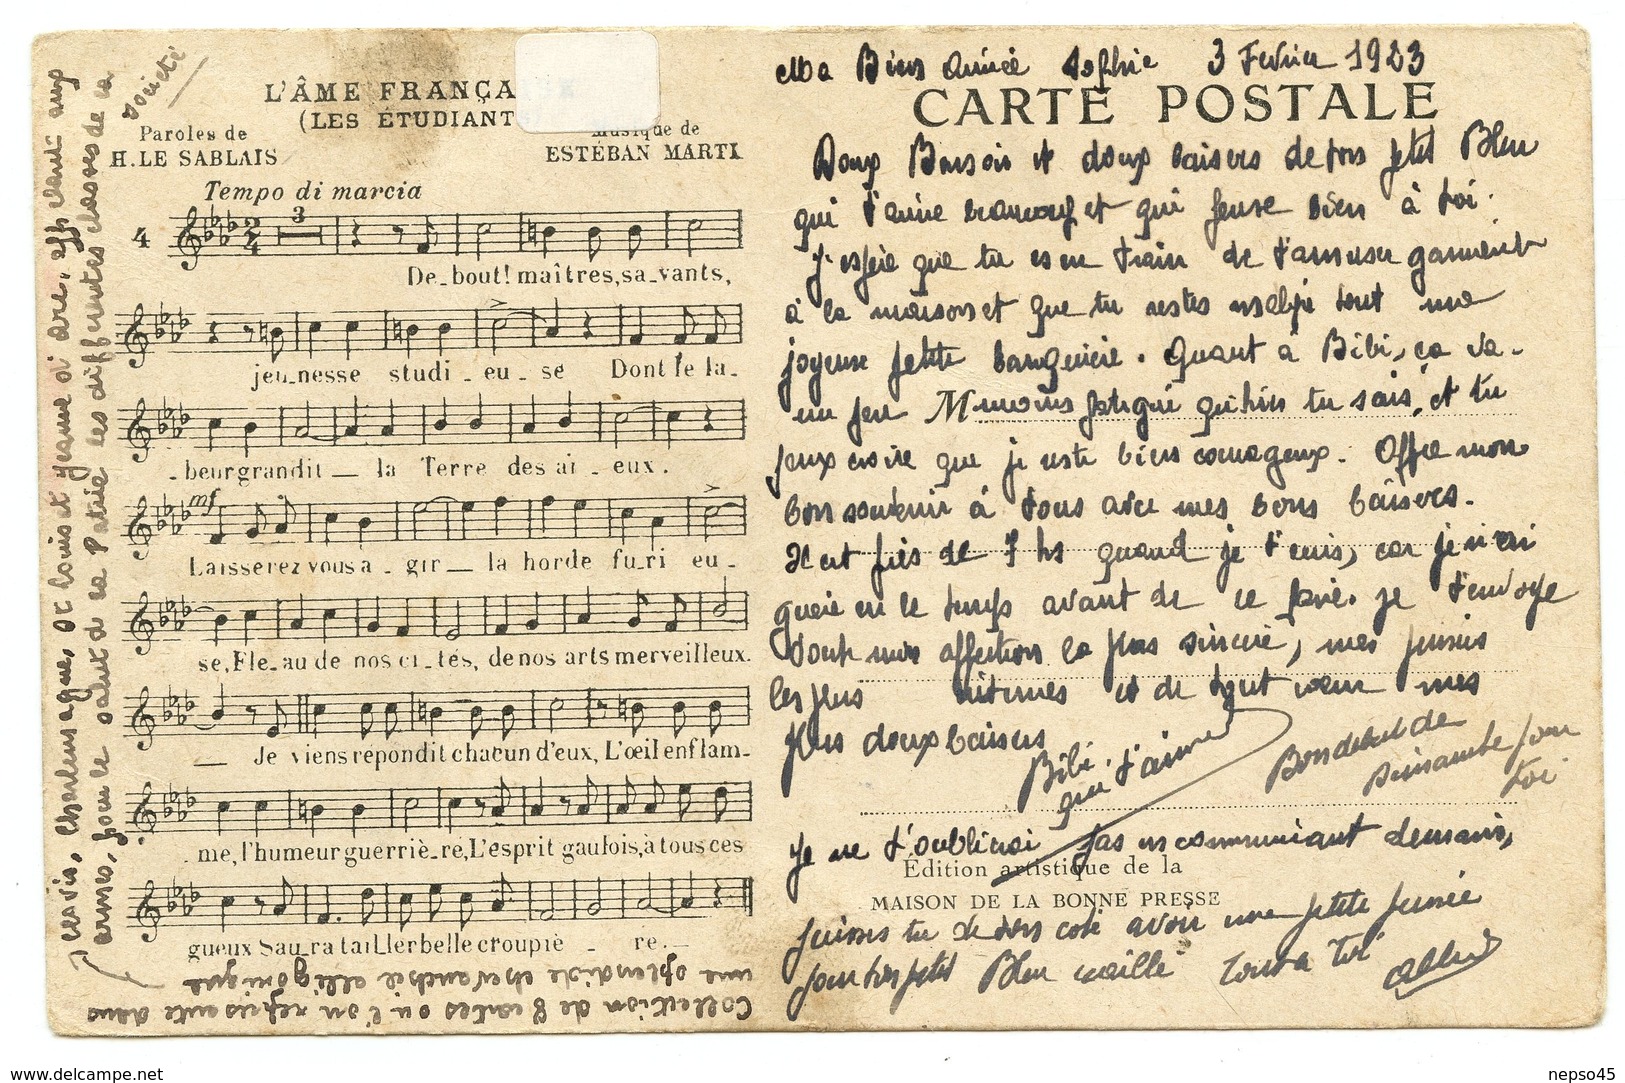 L'ÂME FRANÇA
(LES ÉTUDIANTS)
Paroles de
H. LE SABLAIS
Musique de
ESTÉBAN MARTI
Tempo di marcia
4
3
De_bout! maîtres, sa_vants,
jeu_nesse studi_eu_se Dont le la_
_beur grandit _ la Terre des aï_eux.
mf
Laisserez vous a_gir _ la horde fu_ri eu_
se, Flé_au de nos ci_tés, de nos arts merveilleux.
_ Je viens répondit chacun d'eux, L'œil enflam_
_me, l'humeur guerriè_re, L'esprit gaulois, à tous ces
gueux Sau_ra tailller belle croupiè _ re._
Collection de 8 cartes où l'on représente dans
une splendide chevauchée allégorique
Clovis, Charlemagne, St Louis et Jeanne d'arc, offrant aux
armes, pour le salut de la Patrie les différentes classes de la
société
Ma Bien aimée Sophie 3 Fevrier 1923
CARTE POSTALE
Doux Bonsoir et doux baisers de ton petit Bleu
qui t'aime beaucoup et qui pense bien à toi.
J'espère que tu es en train de t'amuser gaiment
à la maison et que tu restes malgré tout ma
joyeuse petite banquière. Quant à Bibi, ça va
un peu moins fatigué qu'hier tu sais, et tu
peux croire que je reste bien courageux. Offre mon
bon souvenir à tous avec mes bons baisers.
Il est près de 7 hs quand je t'écris, car je n'ai
guère eu le temps avant de le faire. Je t'envoye
toute mon affection la plus sincère, mes pensées
les plus intimes et de tout cœur mes
plus doux baisers
Bibi
qui t'aime
Bon debut de
Dimanche pour
toi
Je ne t'oublierai pas en communiant demain,
Édition artistique de la
MAISON DE LA BONNE PRESSE
puisses tu de ton coté avoir une petite pensée
pour ton petit Bleu Tout à Toi
Albert
www.delcampe.net
nepso45